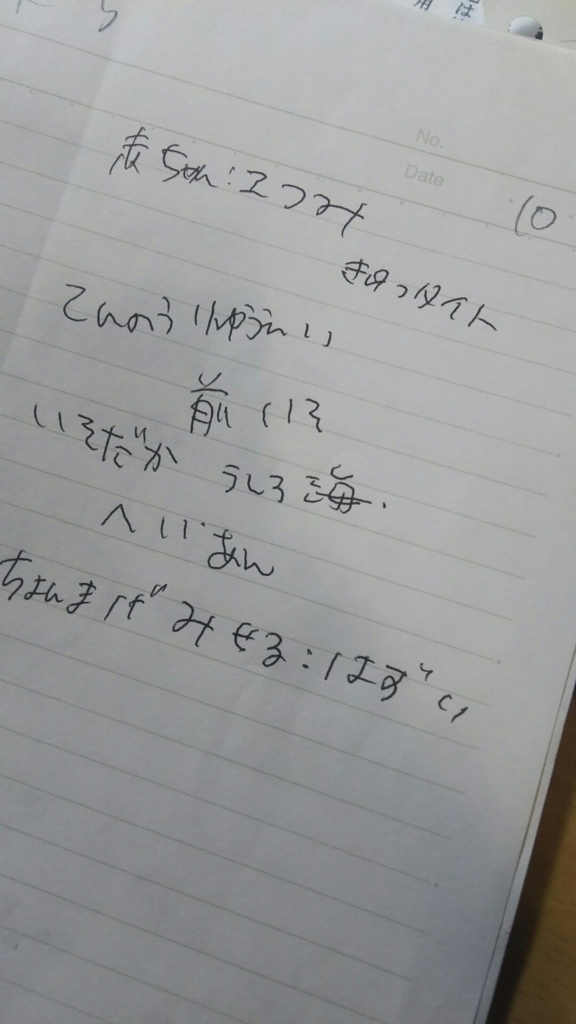 No.
Date
10
赤ちゃん:エつみ
きゅっタイト
てんのうりゅうへい
前いそ
いそだか うしろ海.
へいあん
ちょんまげみせる:はずい